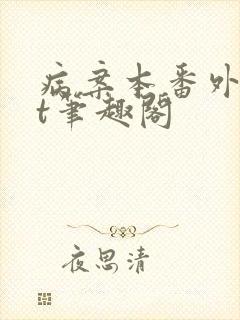 病案本番外
t笔趣阁
夜思清